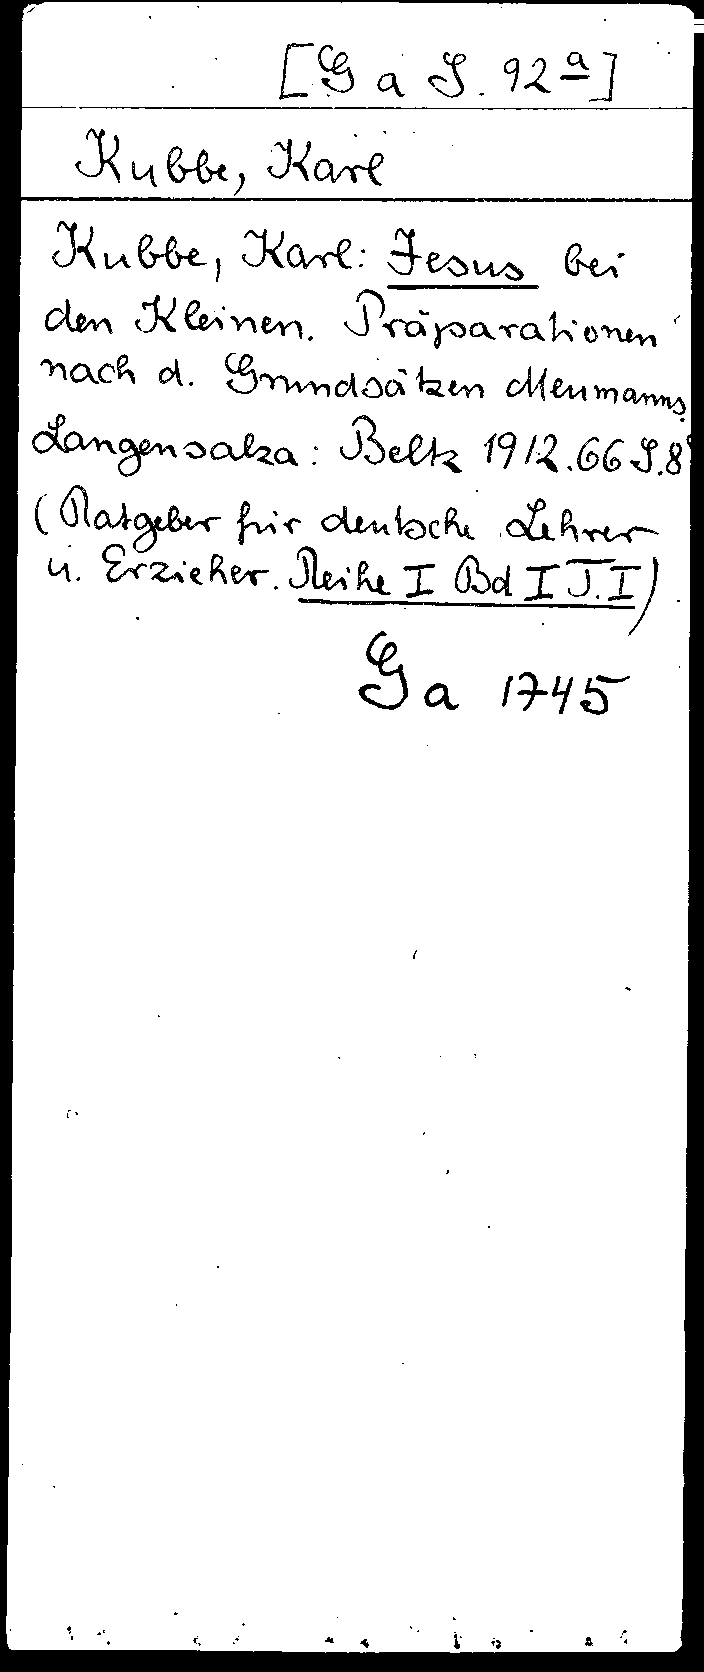 [G a S. 92a]
Kubbe, Karl
Kubbe, Karl: Jesus bei
den Kleinen. Präparationen
nach d. Grundsätzen Meumanns.
Langensalza: Beltz 1912. 66 S. 8°
(Ratgeber für deutsche Lehrer
u. Erzieher. Reihe I Bd I T. I)
Ga 1745